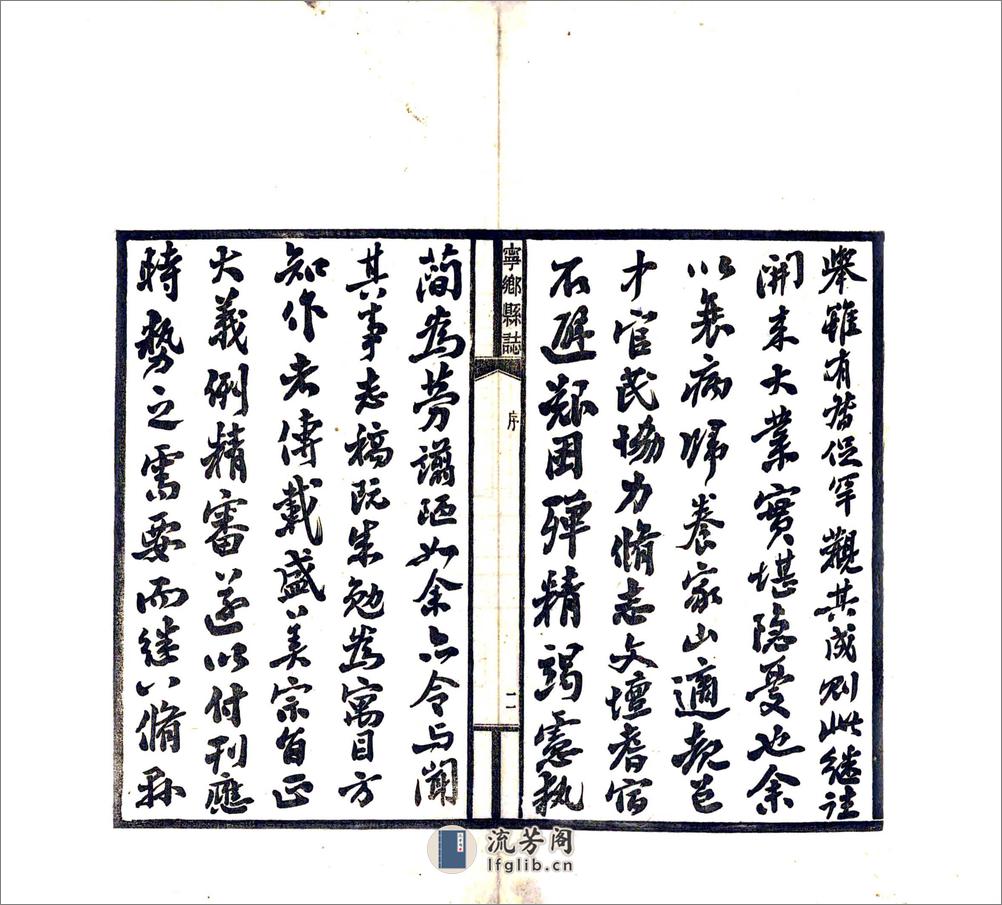 舉雖有督促罕觀其成則此繼往
開來大業實堪隱憂也余
以衰病歸養家山適覩邑
才官民協力脩志文壇耆宿
不避艱困殫精竭慮執
寧鄉縣誌
序
二一
簡為勞譾陋如余亦令与聞
其事志稿既勉為寓目方
知作者傳載盛美宗旨正
大義例精審遂以付刊應
時勢之需要而继以脩縣
流芳阁
lfglib.cn